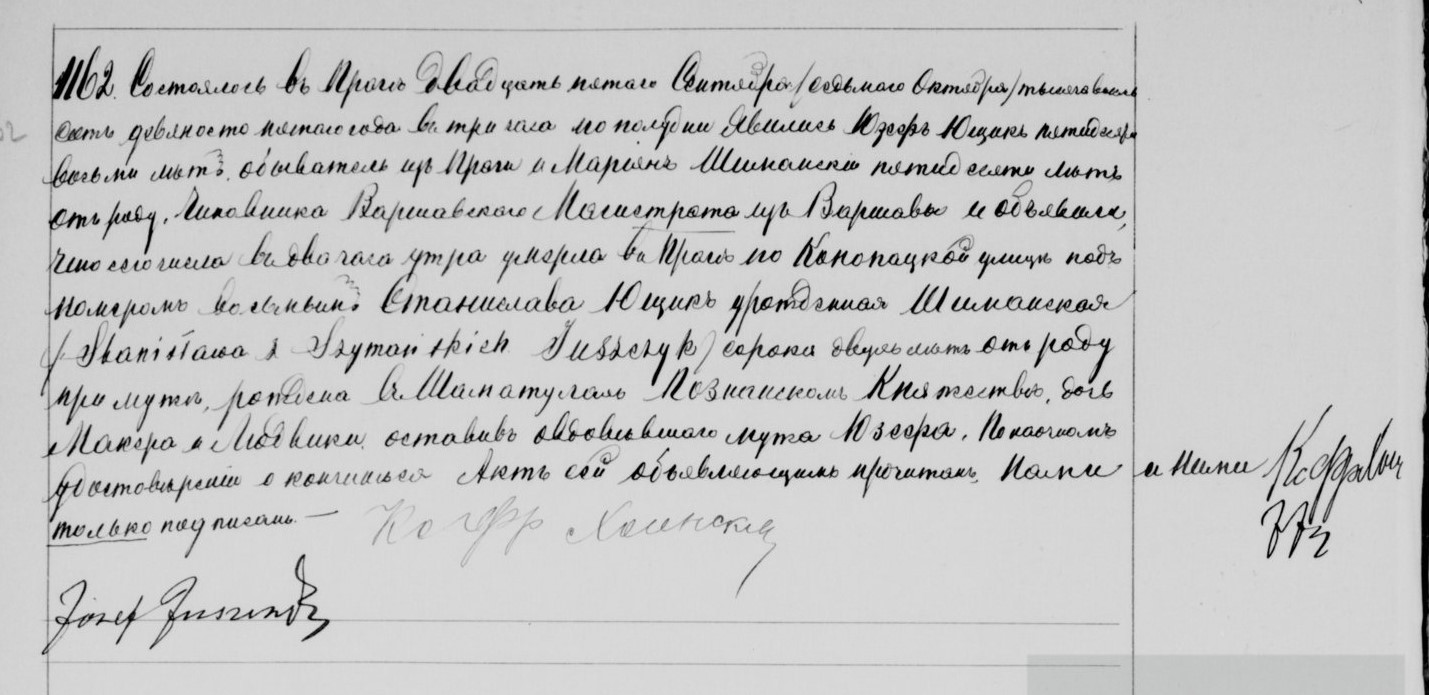 1162. Состоялось въ Прагѣ двадцать пятаго Сентября /седьмаго Октября/ тысяча восемь
сотъ девяносто пятаго года въ три часа по полудни Явились Юзефъ Ющикъ пятидесяти
восьми лѣтъ обыватель изъ Праги и Марiянъ Шиманскiй пятидесяти лѣтъ
отъ роду, Чиновника Варшавскаго Магистрата изъ Варшавы и объявили,
что сего числа въ два часа утра умерла въ Прагѣ по Конопацкой улицѣ подъ
номеромъ восьмымъ Станислава Ющикъ урожденная Шиманская
/Stanisława z Szymańskich Juszczyk/ сорока двухъ лѣтъ отъ роду
при мужѣ, рождена въ Шаматулахъ Познанскомъ Княжествѣ, дочь
Макера и Людвики оставивъ овдовѣвшаго мужа Юзефа. По наочномъ
удостовѣренiи о кончинѣ ея Актъ сей объявляющимъ прочитанъ, Нами и ними
только подписанъ. —
Józef Juszczyk